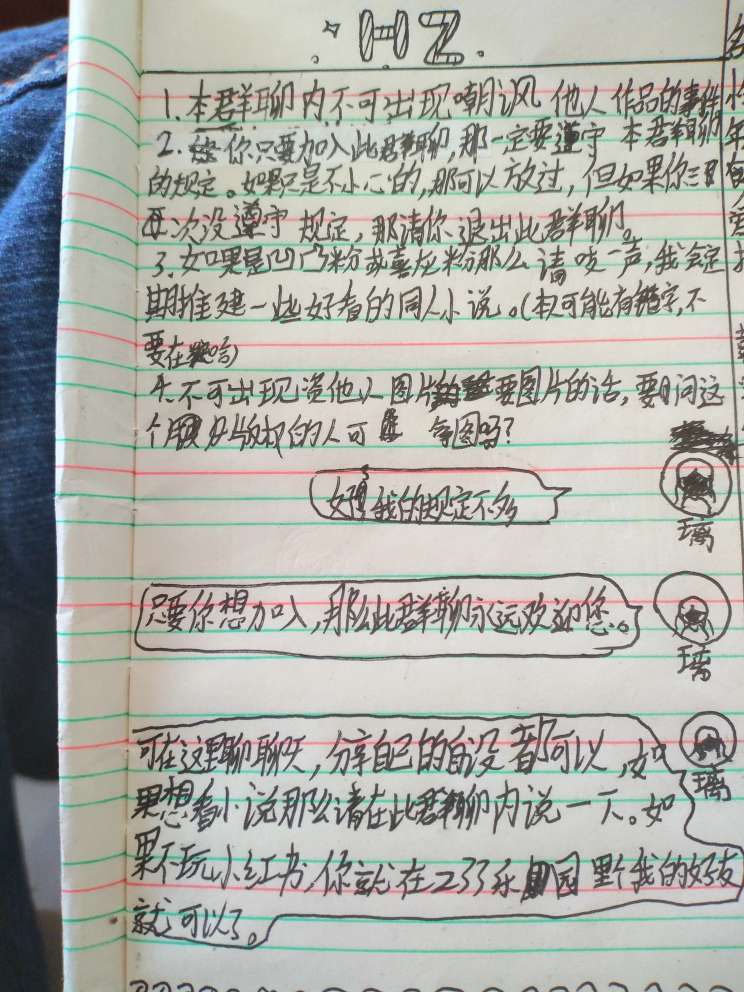 HZ.
1.本群聊内不可出现嘲讽 他人作品的事件
2.你只要加入此群聊,那一定要遵守 本群聊
的规定。如果只是不小心的,那可以放过,但如果你三
次没遵守 规定,那请你退出此群聊。
3.如果是凹凸粉或喜龙粉那么请吱一声,我会定
期推建一些好看的同人小说。(本可能有错字,不
要在
4.不可出现盗他人图片 要图片的话,要问这
个 版权的人可 图吗?
好 我的规定不多
璃
只要你想加入,那么此群聊永远欢迎您。
璃
可在这里聊聊天,分享自己的自设都可以,如
果想看小说那么请在此群聊内说一下。如
璃
果不玩小红书,你就在233乐园 我的好友
就可以了。